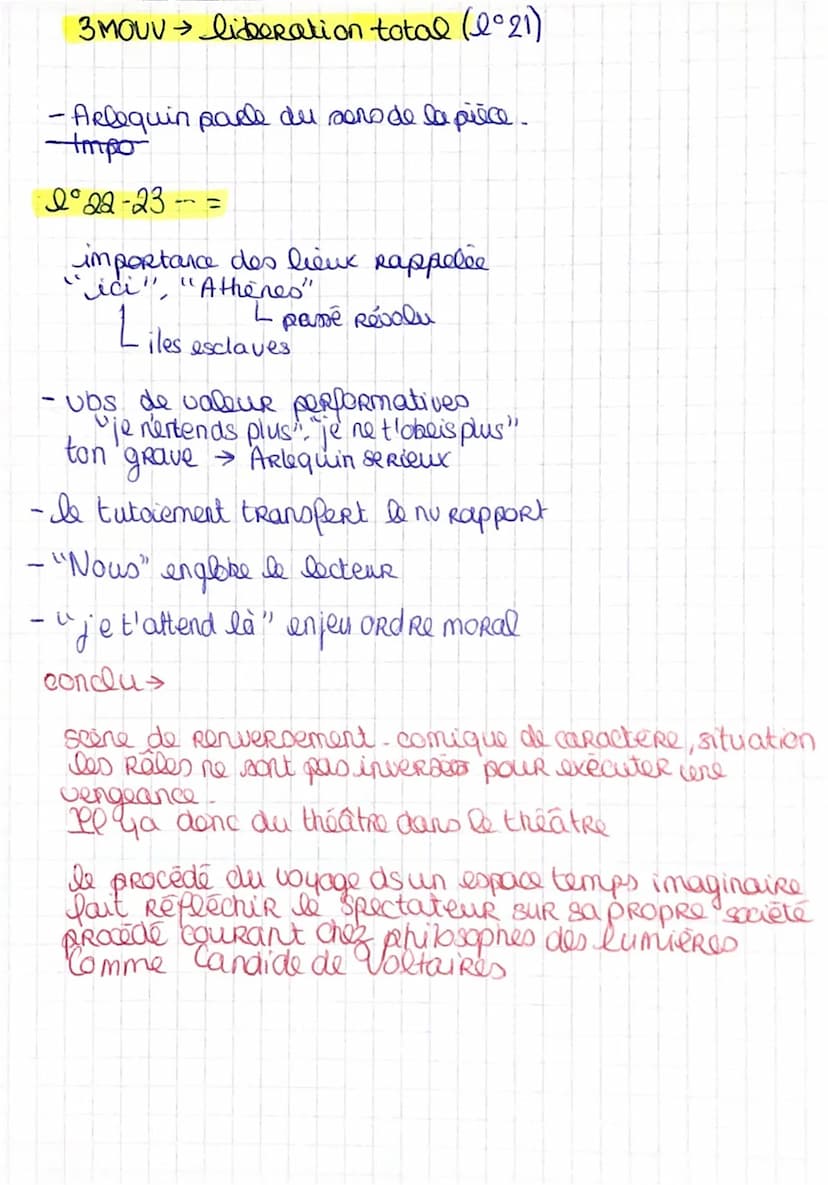 3 MOUV → libération total (l°21)
- Arlequin parle du sens de la pièce.
Impo
l° 22-23 -- =
importance des lieux rappelée
"ici", "Athènes"
└ passé révolu
└ iles esclaves
- vbs de valeur performatives
"je n'entends plus", "je ne t'obeis plus"
ton grave → Arlequin serieux
- le tutoiement transfert le nv rapport
- "Nous" englobe le lecteur
- "je t'attend là" enjeu ordre moral
conclu →
scène de renversement - comique de caractère, situation
les rôles ne sont pas inversés pour exécuter une
vengeance.
Il y a donc du théâtre dans le théâtre
le procédé du voyage ds un espace temps imaginaire
fait réfléchir le spectateur sur sa propre société
procédé courant chez philosophes des lumières
comme Candide de Voltaires